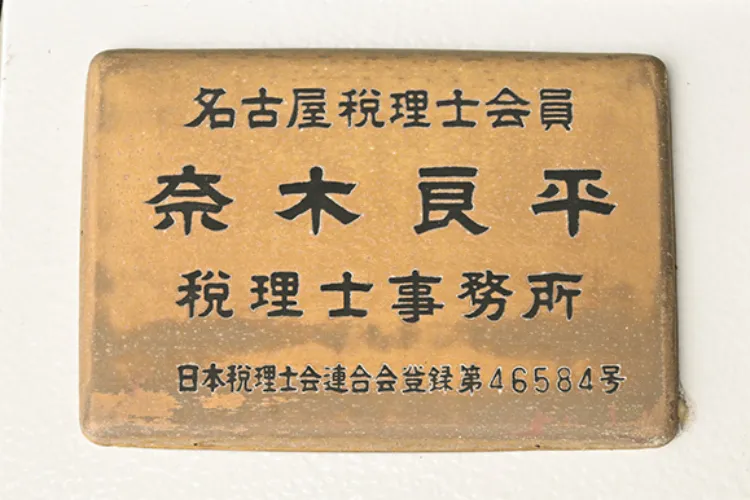 名古屋税理士会員
奈木良平
税理士事務所
日本税理士会連合会登録第46584号